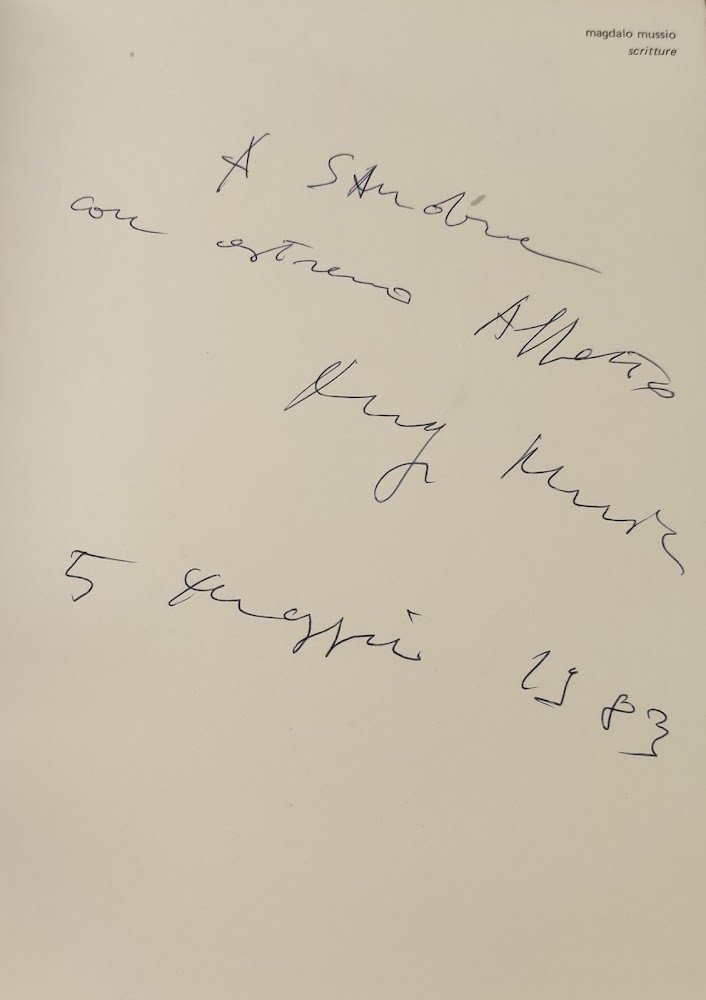 magdalo mussio
scritture
A Sandra
con estremo Affetto
Mag Mussio
5 maggio 1983